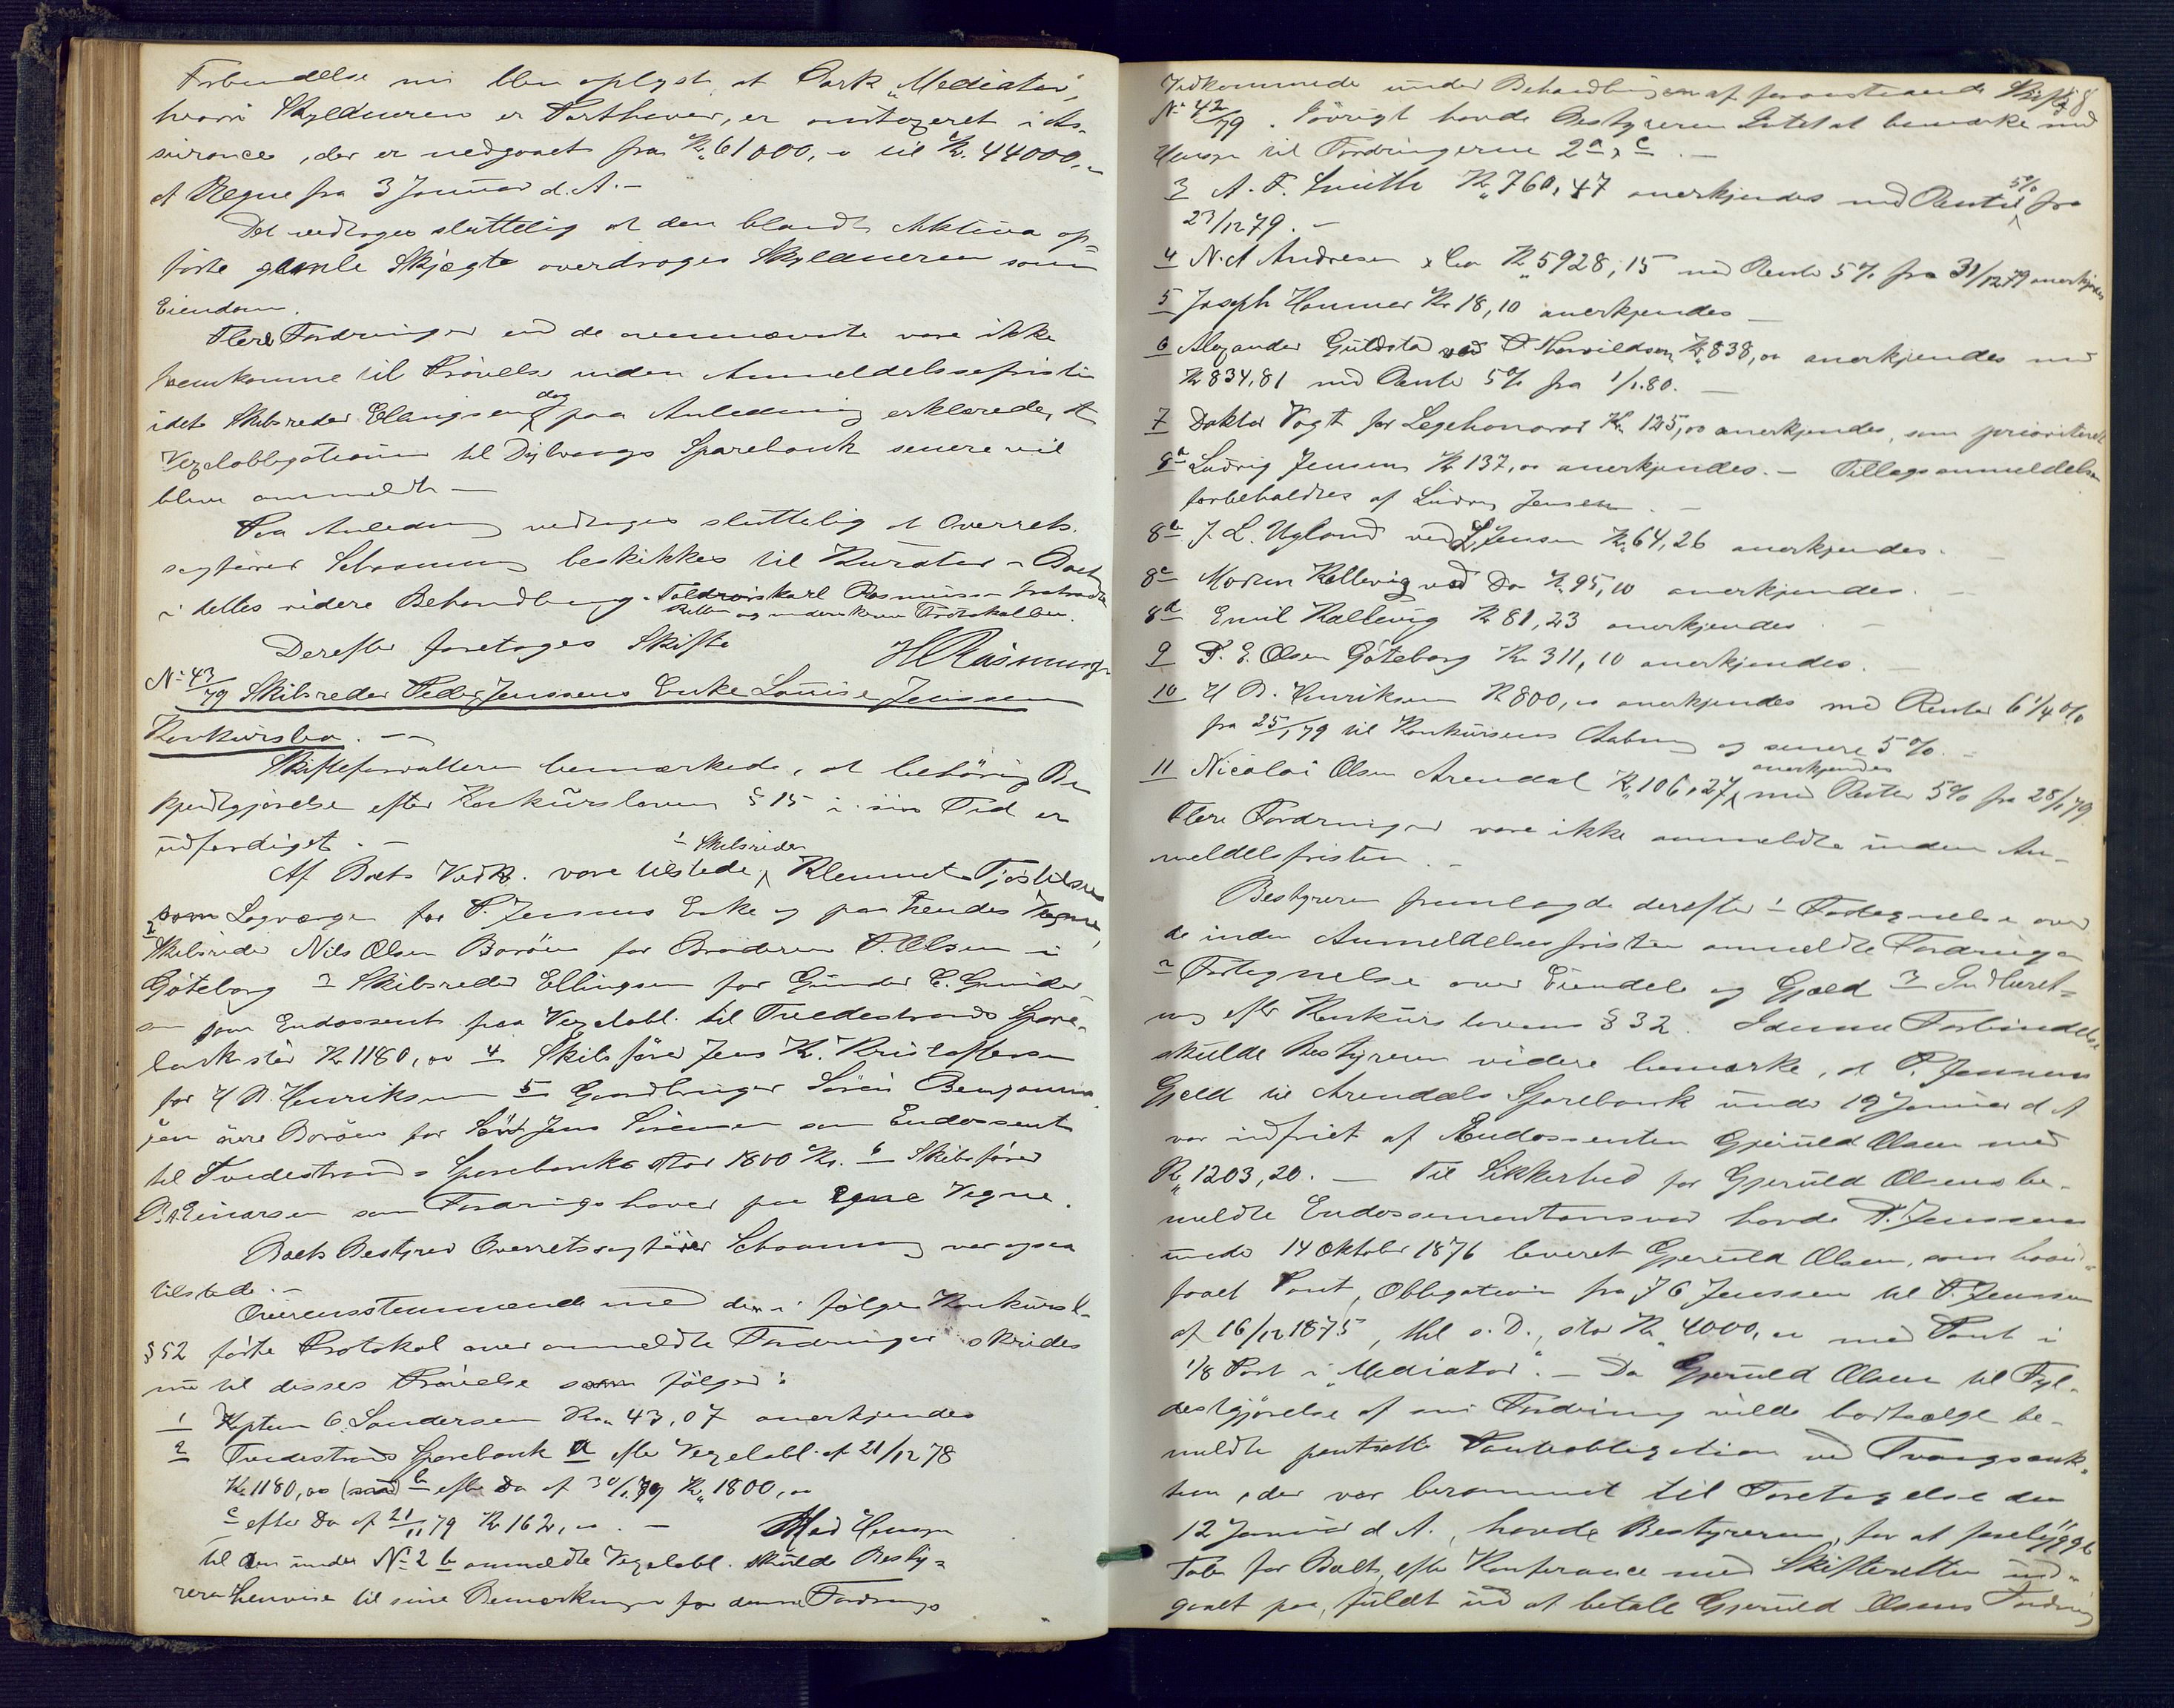 Forbindelse nu blev oplyst, at Bark "Mediator",
hvori Skyldneren er Parthaver, er antageret i As-
surance, der er nedgaaet fra Kr. 61000,- til Kr. 44000,-
at Regne fra 3 Januar d. A. -
Det vedtoges sluttelig at den blandt Aktiva op-
førte gamle Skjægte overdrages Skyldneren som
Eiendom.
Flere Fordringer end de ovennævnte vare ikke
fremkomne til Prøvelse inden Anmeldelsesfristen
idet Skibsreder Ellingsen dog paa Anledning erklærede, at
Vexelobligationen til Dybvaags Sparebank senere vil
blive anmeldt -
Paa Anledning vedtoges sluttelig at Overrets-
sagfører Schaaning beskikkes til Kurator i Boet
i dettes videre Behandling. Toldroerskarl Rasmussen
Retten og underskrev Protokollen.
Derefter foretoges Skifte
H Rasmussen
No 43/79 Skibsreder Peder Jenssens Enke Louise Jenssens
Konkursbo. -
Skifteforvalteren bemærkede, at behørig Be-
kjendtgjørelse efter Konkursloven § 15 i sin Tid er
udfærdiget. -
Af Boets Vedk. vare tilstede, 1 Skibsreder Klemmet Tjøstelsen
som Lagværge for P. Jensens Enke og paa hendes Vegne,
2 Skibsreder Nils Olsen Borøen for Broderen P. Olsen i
Göteborg 3 Skibsreder Ellingsen for Gunder E. Gunder
sen som Endossent paa Vexelobl. til Tvedestrands Spare-
bank stor Kr 1180,00 4 Skibsfører Jens Kr. Kristoffersen
for H B. Henriksen 5 Gaardbruger Søren Benjamin
sen øvre Borøen for Jens Sörensen som Endossent
til Tvedestrands Sparebank stor 1800 Kr. 6 Skibsfører
B. A. Einarsen som Fordringshaver paa egne Vegne.
Boets Bestyrer Overretssagfører Schaaning var ogsaa
tilstede. -
Overensstemmende med den i følge Konkursl.
§ 52 førte Protokol over anmeldte Fordringer skrides
nu til disses Prøvelse som følger:
1 Kaptein C. Sandersen Kr. 43,07 anerkjendes
2 Tvedestrands Sparebank a efter Vexelobl. af 21/12 78
Kr. 1180,00 b efter Do af 30/1 79 Kr. 1800,00
c efter Do af 21/11 79 Kr 162,00. - Med Hensyn
til den under No 2 b anmeldte Vexelobl. skulde Besty-
reren henvise til sine Bemærkninger for denne Fordrings
Vedkommende under Behandlingen af foranstaaende Skifte 8
No 42/79. Iøvrigt havde Bestyreren Intet at bemærke med
Hensyn til Fordringerne 2 a & c. -
3 A. F. Smith Kr. 760,47 anerkjendes med Renter 5% fra
23/12 79. -
4 N. A Andresen & Co Kr. 5928,15 med Rente 5% fra 31/12 79 anerkjendes
5 Joseph Hammer Kr 18,10 anerkjendes -
6 Alexander Guldstad ved P. Thorvildsen Kr. 838,00 anerkjendes med
Kr 834,81 med Rente 5% fra 1/1.80. -
7 Doktor Vogt for Legehonorar Kr. 125,00 anerkjendes, som prioriteret
8a Ludvig Jensen Kr 137,00 anerkjendes. - Tillægsanmeldelse
forbeholdtes af Ludvig Jensen. -
8b J. L. Ugland ved L. Jensen Kr. 64,26 anerkjendes. -
8c Morten Kallevig ved Do Kr. 95,10 anerkjendes. -
8d Emil Kallevig Kr 81,23 anerkjendes. -
9 P. E. Olsen Göteborg Kr 311,10 anerkjendes. -
10 H B. Henriksen Kr 800,00 anerkjendes med Renter 6 1/4 %
fra 25/1 79 til Konkursens Aabning og senere 5%. -
11 Nicolai Olsen Arendal Kr. 106,27 anerkjendes med Renter 5% fra 28/1 79.
Flere Fordringer vare ikke anmeldte inden An-
meldelsfristen. -
Bestyreren fremlagde derefter 1 Fortegnelse over
de inden Anmeldelsesfristen anmeldte Fordringer
2 Fortegnelse over Eiendele og Gjæld 3 Indberet-
ning efter Konkurslovens § 32. I denne Forbindelse
skulde Bestyreren videre bemærke, at P. Jenssens
Gjeld til Arendals Sparebank under 19 Januar d A
var indfriet af Endossenten Gjeruld Olsen med
Kr. 1203,20. - Til Sikkerhed for Gjeruld Olsens be-
meldte Endossementansvar havde P. Jenssen
under 14 Oktober 1876 leveret Gjeruld Olsen, som haand-
faaet Pant, Obligation fra J G Jenssen til P. Jenssen
af 16/12 1875, thl. s. D., stor Kr. 4000,00 med Pant i
1/8 Part i "Mediator". - Da Gjeruld Olsen til Fyl-
destgjørelse af sin Fordring vilde bortsælge be-
meldte pantsatte Panteobligation ved Tvangsauk-
tion, der var berammet til Foretagelse den
12 Januar d A., havde Bestyreren, for at forebygge
Tab for Boet, efter Konferance med Skifteretten ind-
gaaet paa, fuldt ud at betale Gjeruld Olsens Fordring